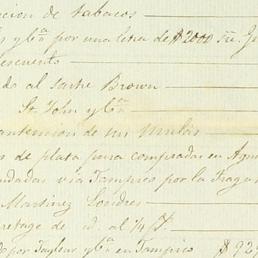 cion de tabacos
y Cᵃ por una letra de $2000 su
descuento
do al sastre Brown
St. John y Cᵃ
antencion de mis mulas
s de plata pasta compradas en Agu
ndadas via Tampico por la Fraga
Martinez Londres
corretage de id. al ½ P.
do por Tayleur y Cᵃ en Tampico $929